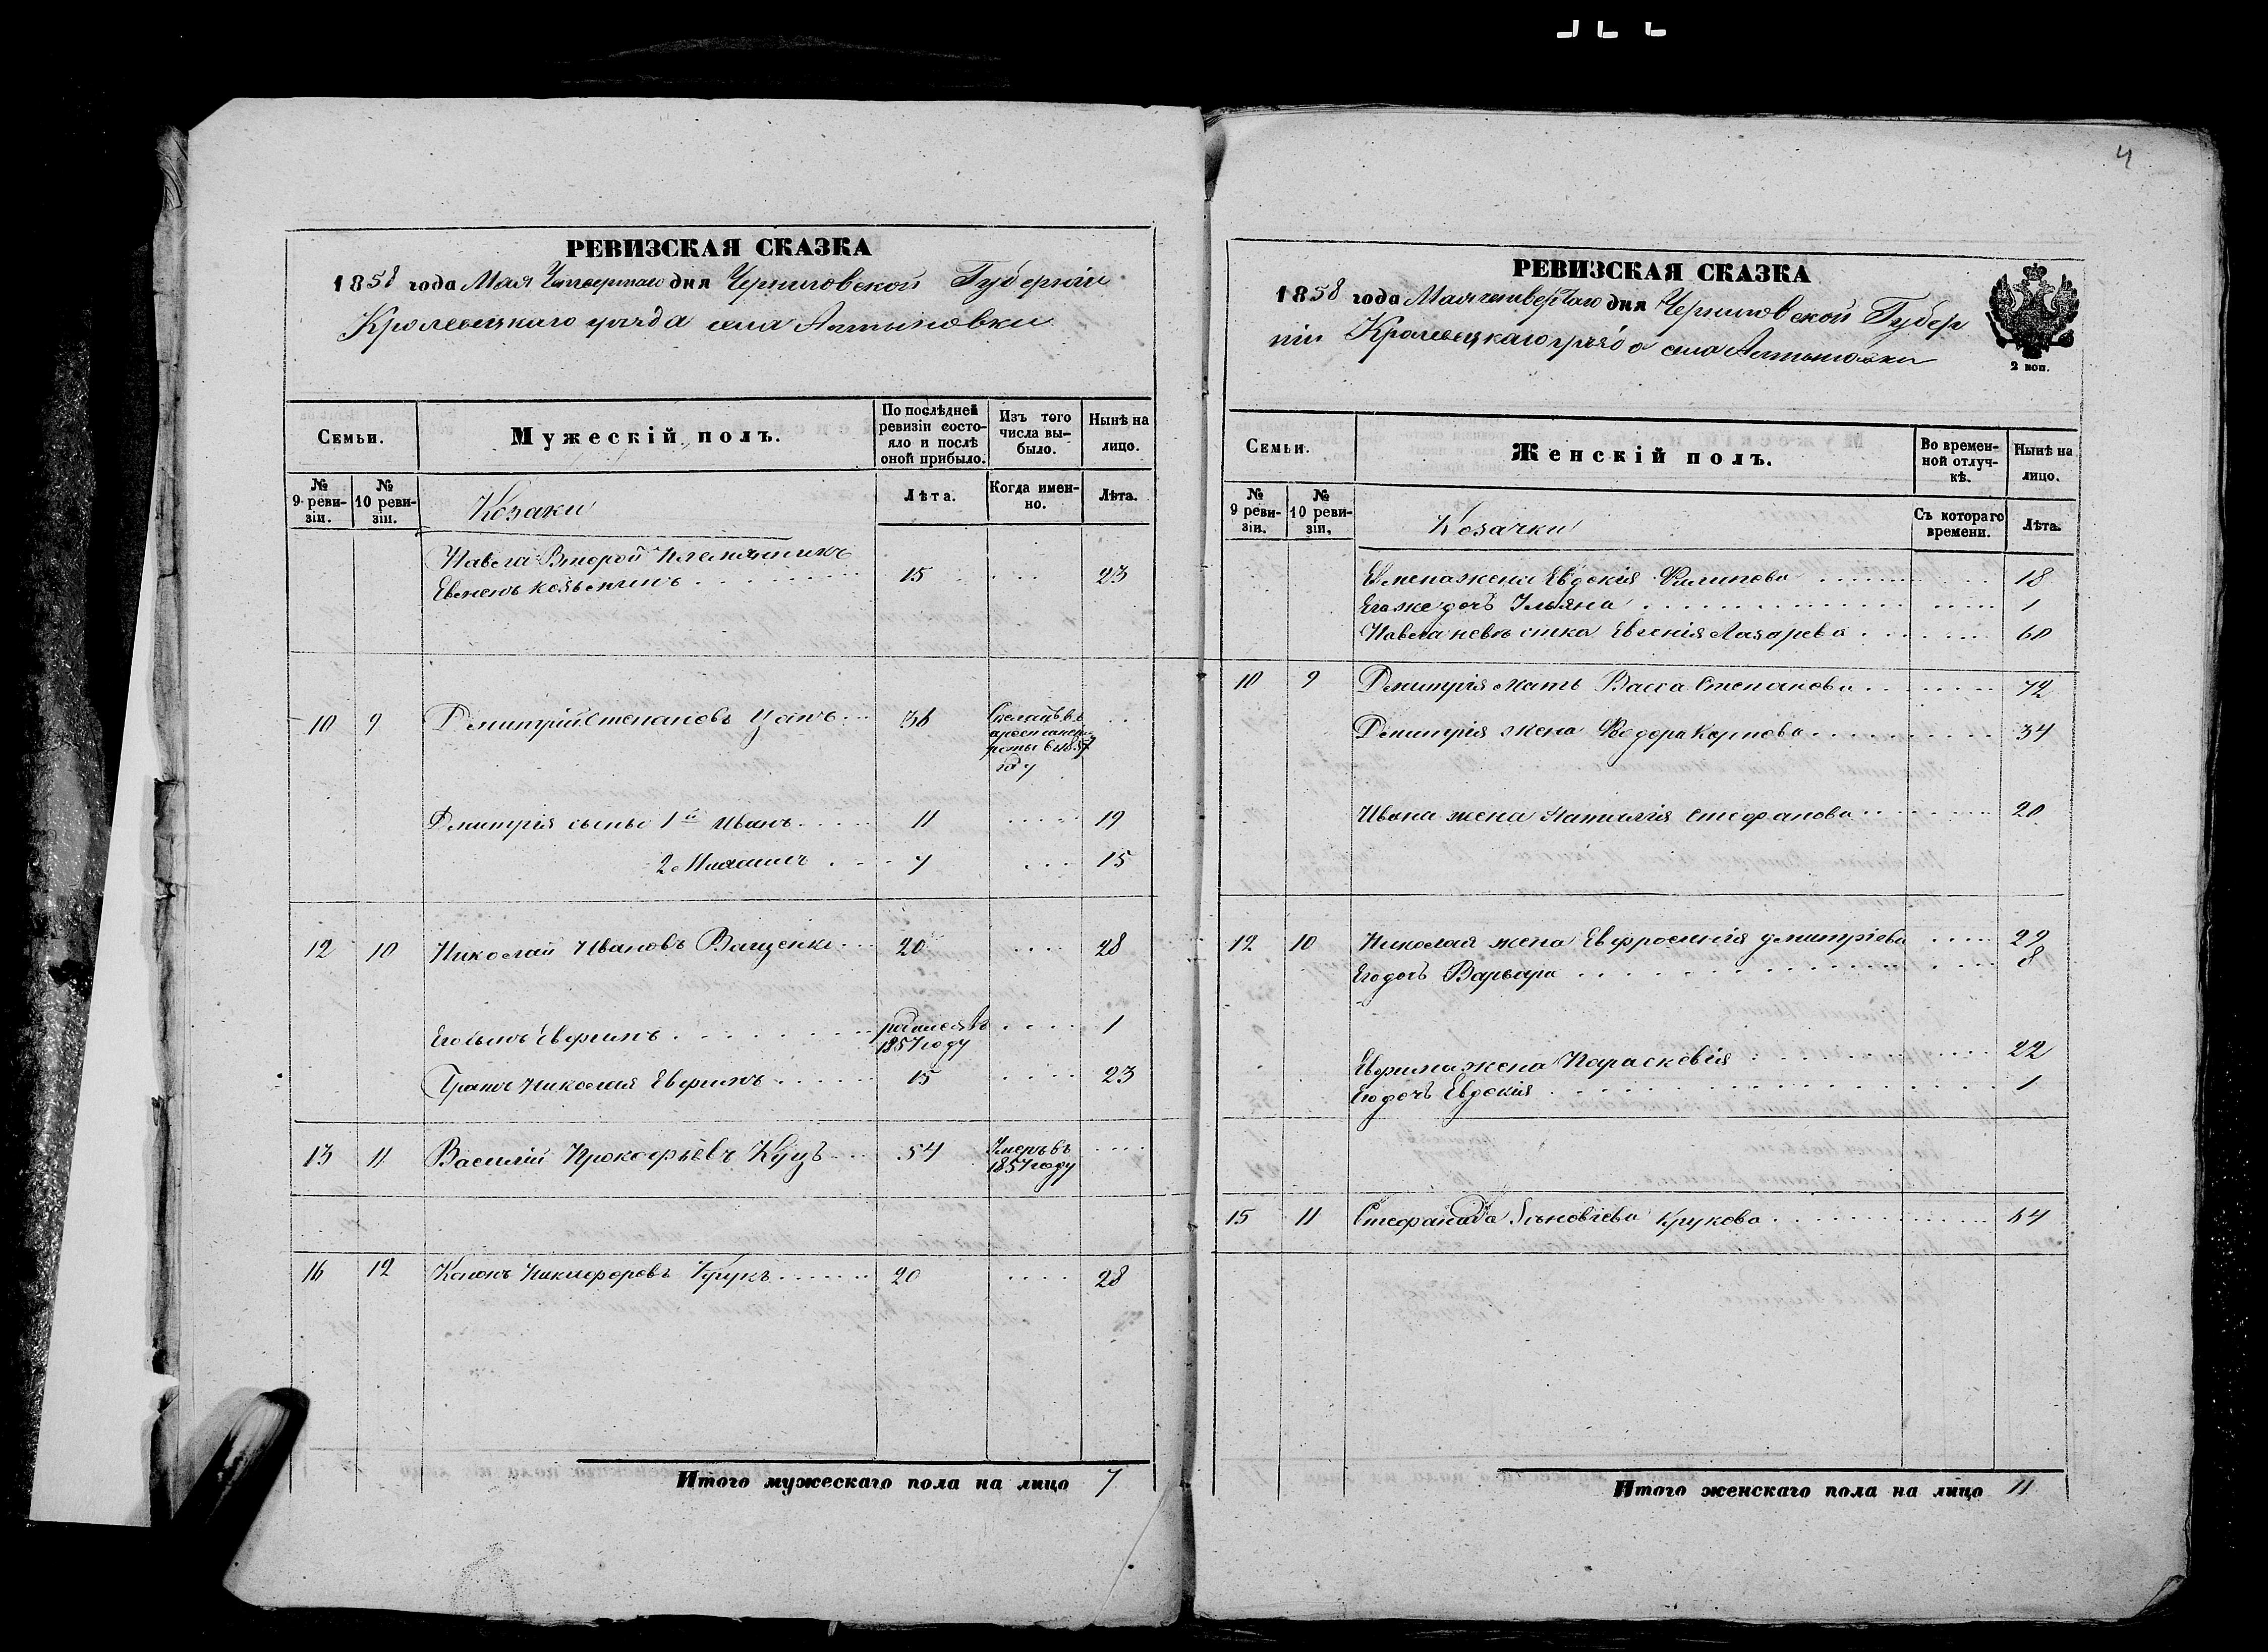 4
РЕВИЗСКАЯ СКАЗКА
1858 года Мая Четвертаго дня Черниговской Губерніи
Кролевецкаго уезда села Алтыновки
Семьи.
Мужескій полъ.
По послѣдней ревизіи состояло и послѣ оной прибыло.
Изъ того числа выбыло.
Нынѣ на лицо.
№ 9 ревизіи.
№ 10 ревизіи.
Козаки
Лѣта.
Когда именно.
Лѣта.
Павела Второй Племянникъ
Евменъ 15 .... 23
10 9 Дмитрій Степановъ Цапъ... 36 въ арестанскія роты в 1857 году ...
Дмитрія сыны 1й Иванъ..... 11 ..... 19
2 ... 7 .... 15
12 10 Николай Ивановъ Ващенко... 20 .... 28
Его сынъ Евфимъ........ родился въ 1857 году .... 1
Братъ Николая Евфимъ...... 15 .... 23
13 11 Василій Прокофьевъ Куцъ... 54 Умеръ въ 1857 году ....
16 12 Кононъ Никифоровъ Крукъ....... 20 .... 28
Итого мужескаго пола на лицо 7
РЕВИЗСКАЯ СКАЗКА
1858 года Мая четвертаго дня Черниговской Губер
ніи Кролевецкаго уезда села Алтыновки
2 коп.
Семьи.
Женскій полъ.
Во временной отлучкѣ.
Нынѣ на лицо.
№ 9 ревизіи.
№ 10 ревизіи.
Козачки
Съ котораго времени.
Лѣта.
Евмена жена Евдокія Филипова ........ 18
Его же дочь Ульяна ........ 1
Павела невѣстка Евгенія Лазарева ........ 60
10 9 Дмитрія мать Васса Степанова ........ 72
Дмитрія жена Федора Карпова ........ 34
Ивана жена Наталія Стефанова ........ 20
12 10 Николая жена Евфросинія Дмитріева ..... 29
Его дочь Варвара ........ 8
Евфима жена Парасковія ........ 22
Его дочь Евдокія ........ 1
15 11 Стефанида Крукова ........ 64
Итого женскаго пола на лицо 11